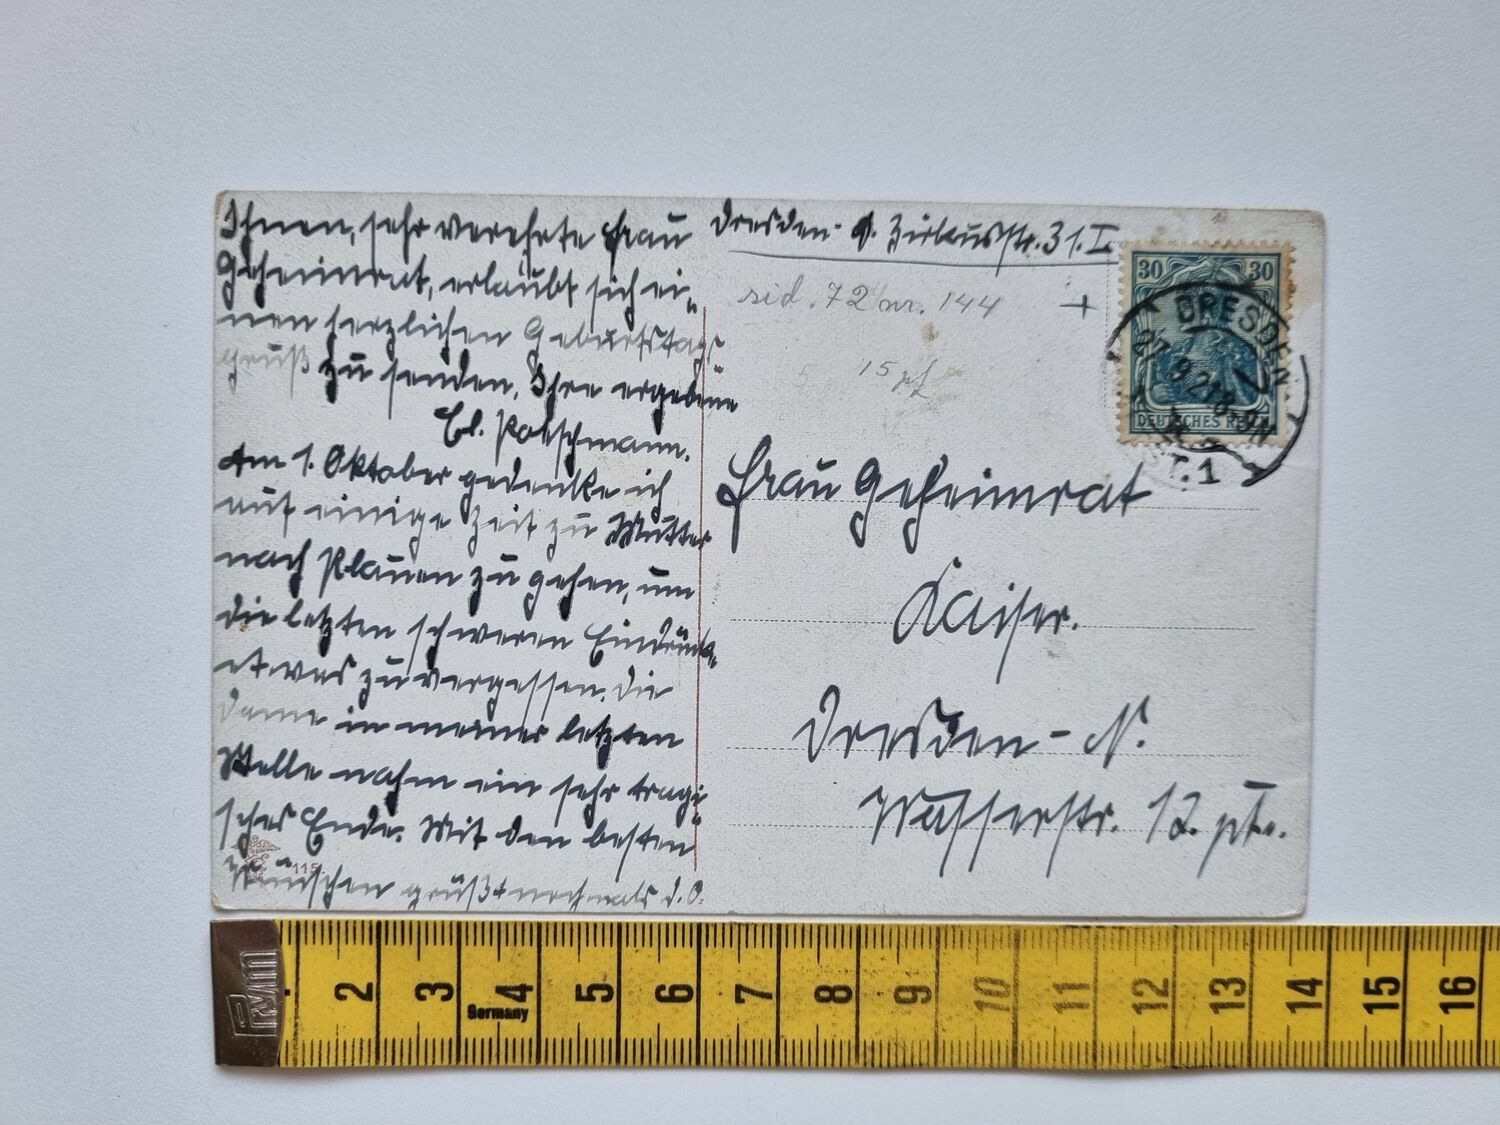 Ihnen, sehr verehrte Frau
Geheimrat, erlaubt sich ei-
nen herzlichen Geburtstags-
gruß zu senden, Ihre ergebene
El. Potschmann.
Am 1. Oktober gedenke ich
auf einige Zeit zu Mutter
nach Plauen zu gehen, um
die letzten schweren Eindrücke
etwas zu vergessen. Die
Dame in meiner letzten
Stelle nahm ein sehr tragi-
sches Ende. Mit den besten
Wünschen grüßt nochmals d. O.
115
Dresden- Zirkusstr. 31. I
sid. 72 nr. 144
+
15 pf
30 30
DEUTSCHES REICH
DRESDEN
9.21. 8-9
1
Frau Geheimrat
Kaiser.
Dresden-N.
Wasserstr. 12. ptr.
Prym
2 3 4 5 6 7 8 9 10 11 12 13 14 15 16
Germany